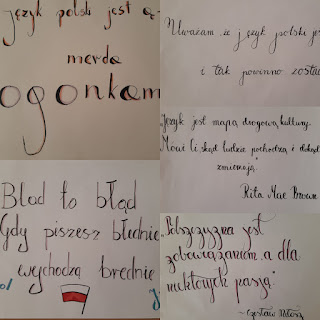 język polski jest ą-ę
merda
Uważam, że język polski jes
i tak powinno zosta
"Język jest mapą drogową kultury.
Mówi Ci, skąd ludzie pochodzą i dokąd
zmierzają."
Rita Mae Brown
Blod to błąd
Gdy piszesz błednie
wychodzą brednie
"Polszczyzna jest
zobowiązaniem, a dla
niektórych pasją."
~Czesław Miłosz